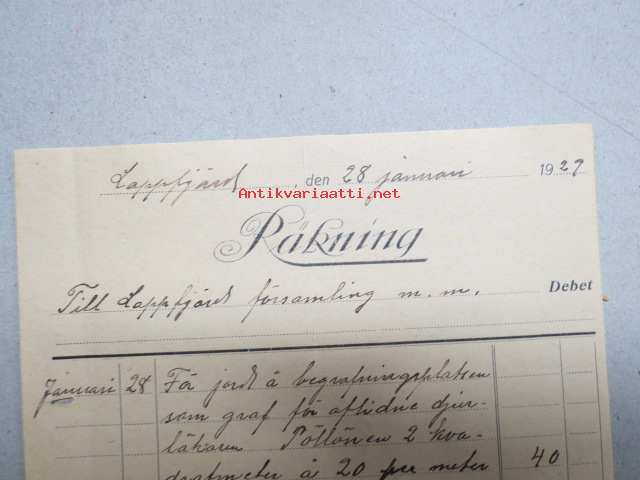 Lappfjärd, den 28 januari 1927
Antikvariaatti.net
Räkning
Till Lappfjärds församling m. m. Debet
Januari 28 För jord å begrafningsplatsen
som graf för aflidne djur-
läkaren Pöllönen 2 kva-
dratmeter à 20 per meter 40